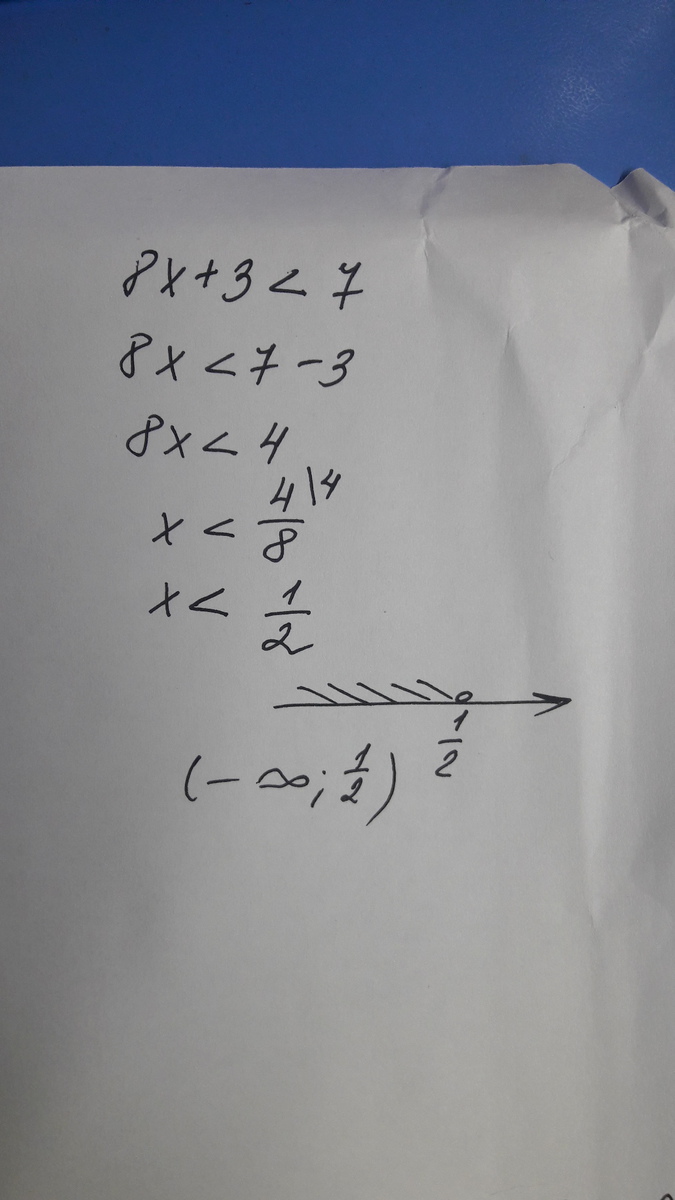 8x+3<7
8x<7-3
8x<4
x<4/8\4
x<1/2
1/2
(-∞;1/2)